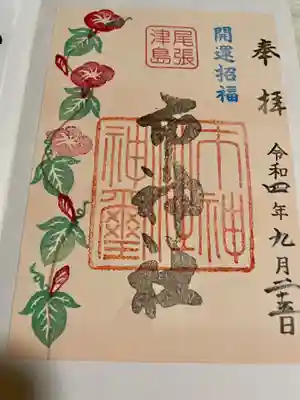 奉拝
令和四年九月二十五日
開運招福
尾張
津島
市神社
大神
神璽